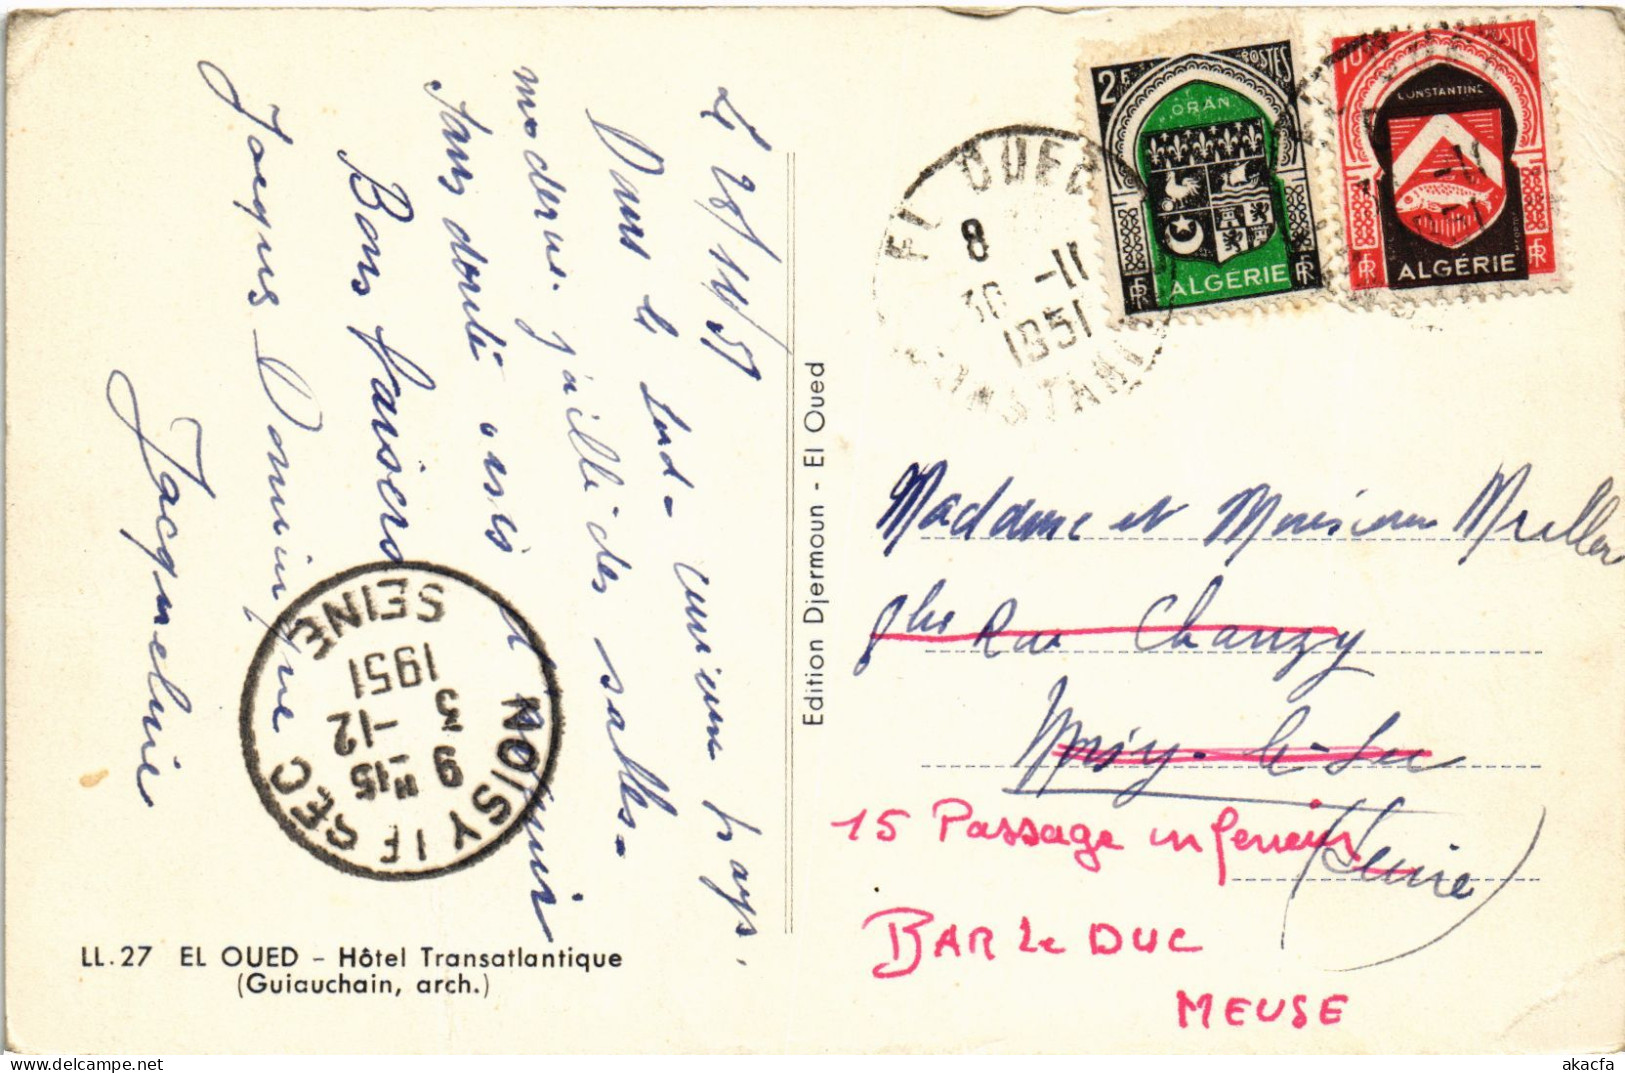 Le 28/11/51
Dans le Sud - curieux pays.
moderne. j'aille des salles -
Sans doute
Bons baisers
Jacques Dominique
Jacqueline
LL.27 EL OUED - Hôtel Transatlantique
(Guiauchain, arch.)
NOISY LE SEC
SEINE
9 H15
3 -12
1951
Edition Djermoun - El Oued
EL OUED
8
30 -11
1951
CONSTANTINE
2F POSTES
ORAN
RF ALGÉRIE RF
10F POSTES
CONSTANTINE
RF ALGÉRIE RF
Madame et Monsieur Muller
9bis Rue Chanzy
Noisy-le-Sec
(Seine)
15 Passage inferieur
BAR LE DUC
MEUSE
akacfa